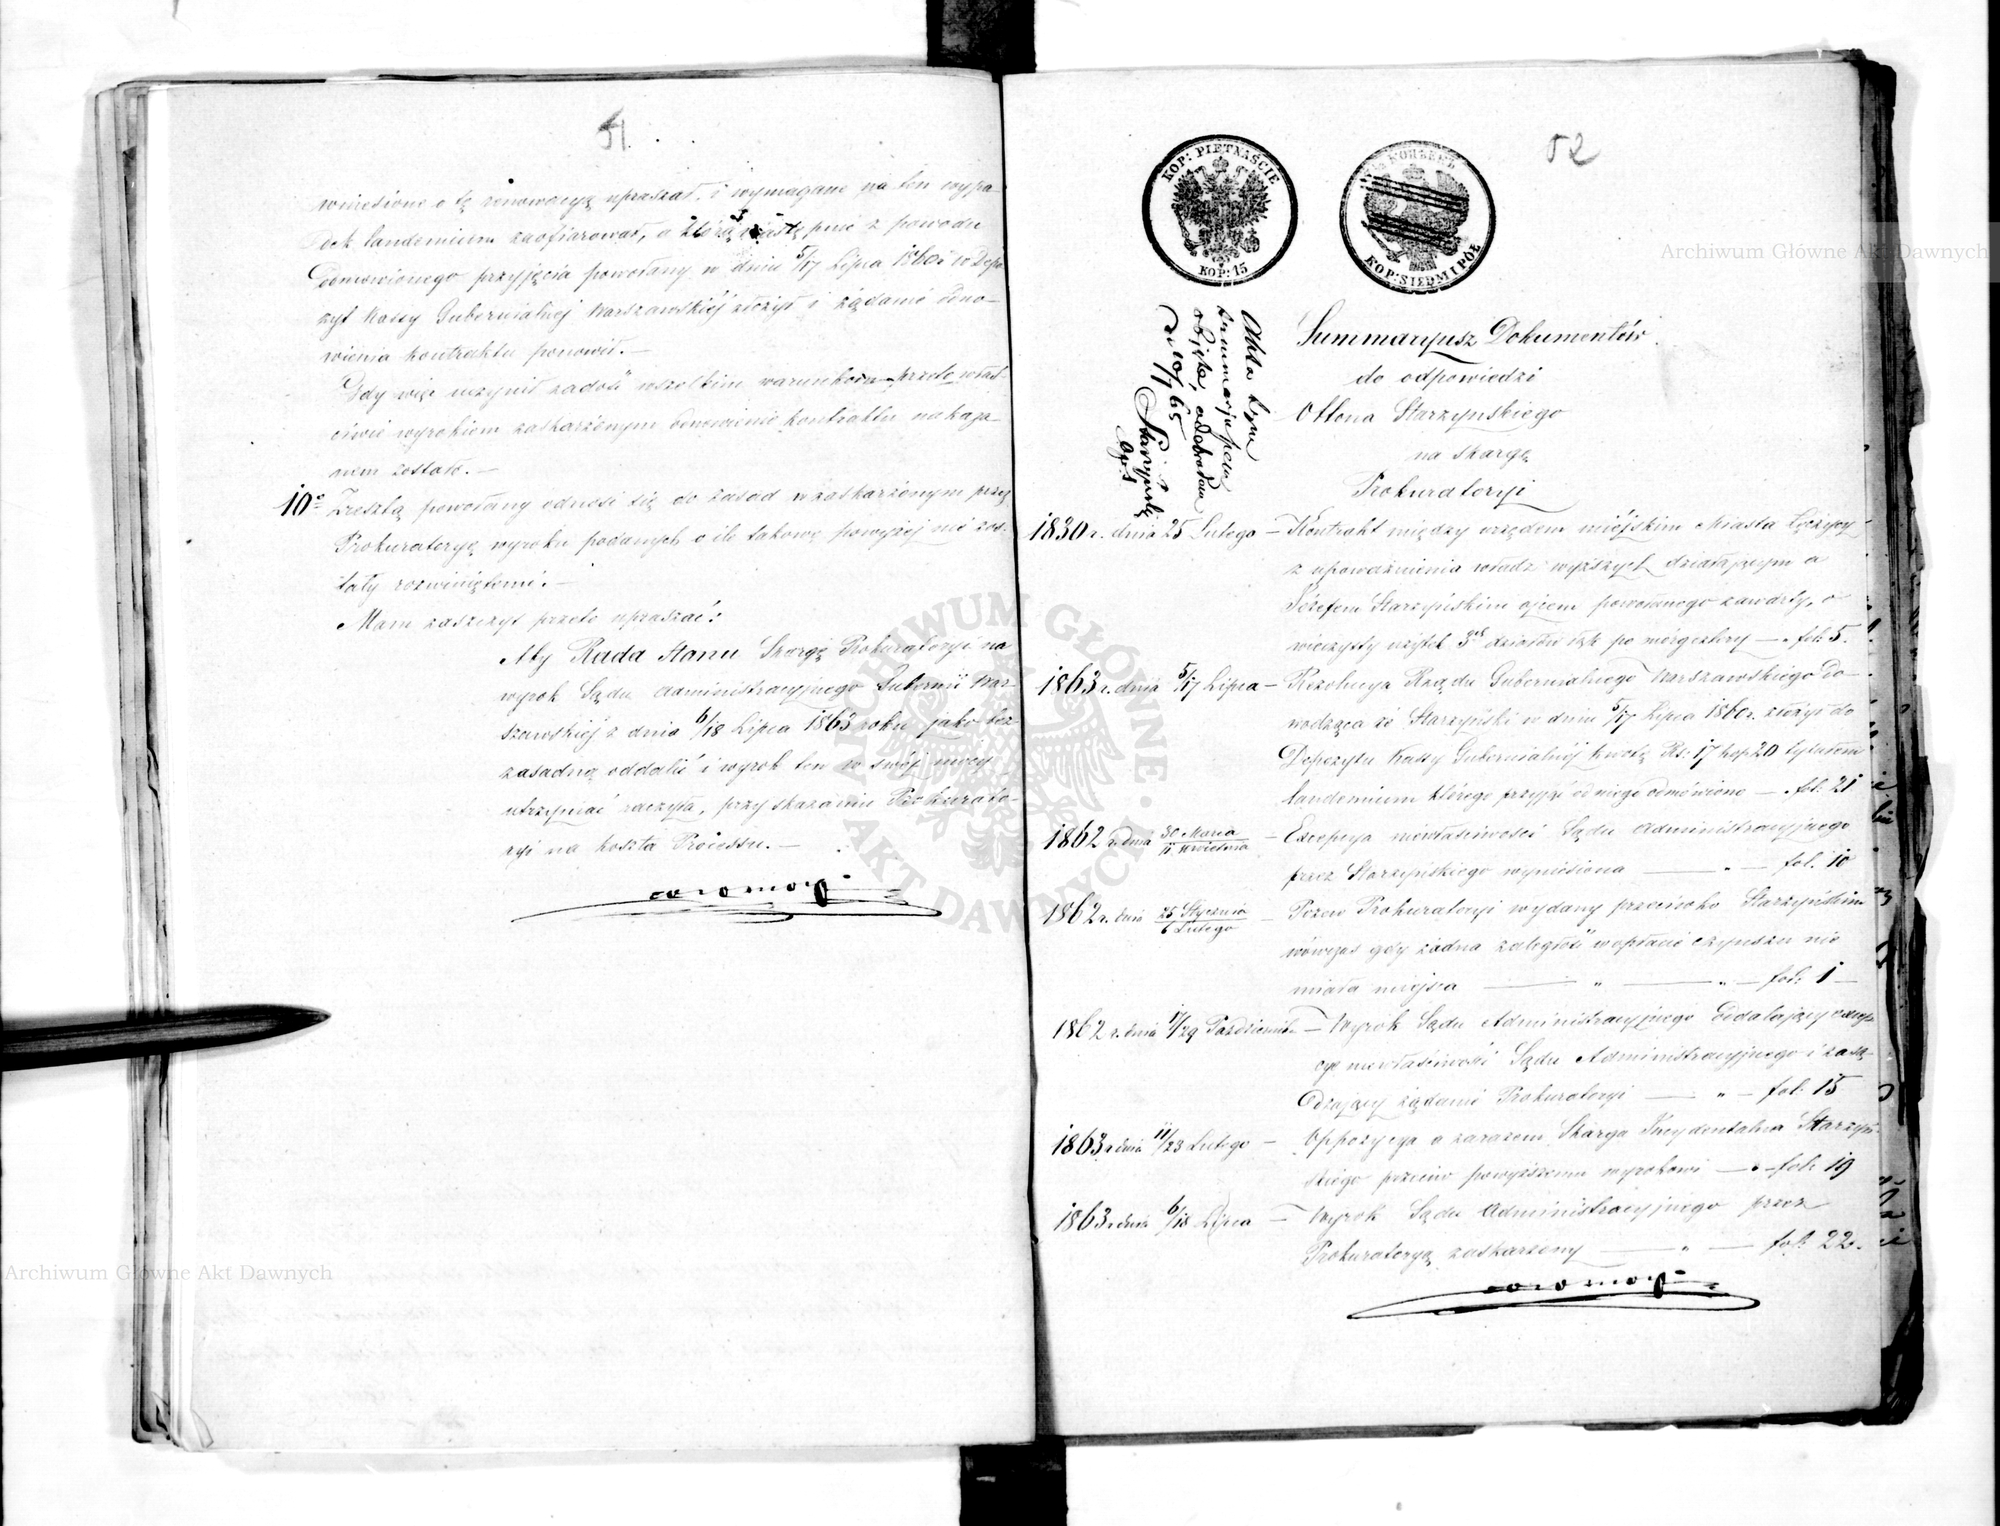 51.
wniesione o tę renowacyę upraszał, i wymagane na ten wypa-
dek laudemium zaofiarował, a które następnie z powodu
odmówionego przyjęcia powołany w dniu 5/17 Lipca 1860 r w Depo-
zyt Kassy Gubernialnéj Warszawskiéj złożył i żądanie odno-
wienia kontraktu ponowił. —
Gdy więc uczynił zadość wszelkim warunkom przeto właś-
ciwie wyrokiem zaskarżonym odnowienie kontraktu nakaza-
nem zostało. —
10º Zresztą powołany odnosi się do zasad w zaskarżonym przez
Prokuratoryę wyroku podanych o ile takowe powyżej nie zos-
tały rozwiniętemi. —
Mam zaszczyt przeto upraszać:
Aby Rada Stanu Skargę Prokuratoryi na
wyrok Sądu Administracyjnego Gubernii War-
szawskiéj z dnia 6/18 Lipca 1863 roku jako bez-
zasadną oddalić i wyrok ten w swéj mocy
utrzymać raczyła, przy skazaniu Prokurato-
ryi na koszta Processu. —
52
KOP: PIETNAŚCIE
KOP: 15
KOP: SIEDM I PÓŁ
Akta tym
summaryuszem
objęte, odebrałem
d. 10/7 65
Starzyński
Summaryusz Dokumentów
do odpowiedzi
Ottona Starzynskiego
na skargę
Prokuratoryi
1830 r. dnia 25 Lutego — Kontrakt między urzędem miéjskim Miasta Łęczycy
z upoważnienia władz wyższych działającym a
Józefem Starzyńskim ojcem powołanego zawarty, o
wieczysty użytek 3ch działów łąk po mórg cztery — „ fol: 5.
1863 r. dnia 5/17 Lipca — Rezolucya Rządu Gubernialnego Warszawskiego do-
wodząca że Starzyński w dniu 5/17 Lipca 1860 r. złożył do
Depozytu Kassy Gubernialnéj kwotę Rs: 17 kop 20 tytułem
laudemium którego przyjęcia od niego odmówiono — „ fol: 21
1862 r. dnia 30 Marca / 11 Kwietnia — Excepcya niewłaściwości Sądu Administracyjnego
przez Starzyńskiego wyniesiona — „ — fol: 10
1862 r. dnia 25 Stycznia / 6 Lutego — Pozew Prokuratoryi wydany przeciwko Starzyńskiemu
wówczas gdy żadna zaległość w opłacie czynszu nie
miała miejsca — „ — „ — fol: 1 —
1862 r. dnia 17/29 Październ: — Wyrok Sądu Administracyjnego oddalający excep-
cyę niewłaściwości Sądu Administracyjnego i zasą-
dzający żądanie Prokuratoryi — „ — fol: 15
1863 r. dnia 11/23 Lutego — Oppozycya a zarazem Skarga Incydentalna Starzyń-
skiego przeciw powyższemu wyrokowi — „ — fol: 19
1863 r. dnia 6/18 Lipca — Wyrok Sądu Administracyjnego przez
Prokuratoryę zaskarżony — „ — fol: 22.
ARCHIWUM GŁÓWNE AKT DAWNYCH
Archiwum Główne Akt Dawnych
Archiwum Główne Akt Dawnych